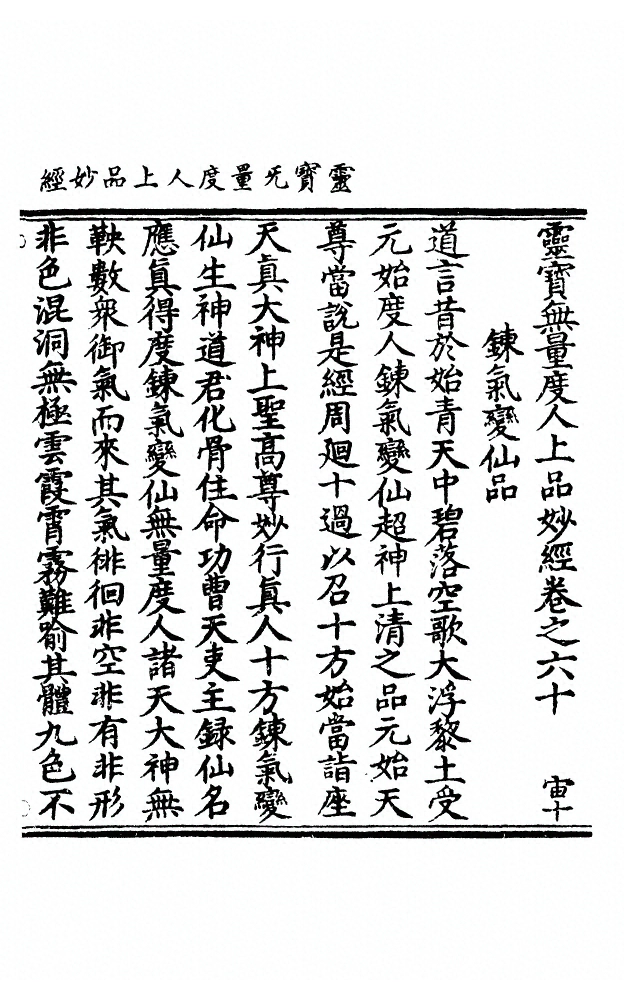 靈寶旡量度人上品妙經
靈寶無量度人上品妙經卷之六十 宙十
鍊氣變仙品
道言昔於始青天中碧落空歌大浮黎土受
元始度人鍊氣變仙超神上清之品元始天
尊當說是經周廻十過以召十方始當詣座
天真大神上聖高尊妙行真人十方鍊氣變
仙生神道君化骨住命功曹天吏主録仙名
應真得度鍊氣變仙無量度人諸天大神無
鞅數衆御氣而來其氣徘徊非空非有非形
非色混洞無極雲霞霄霧難喻其體九色不